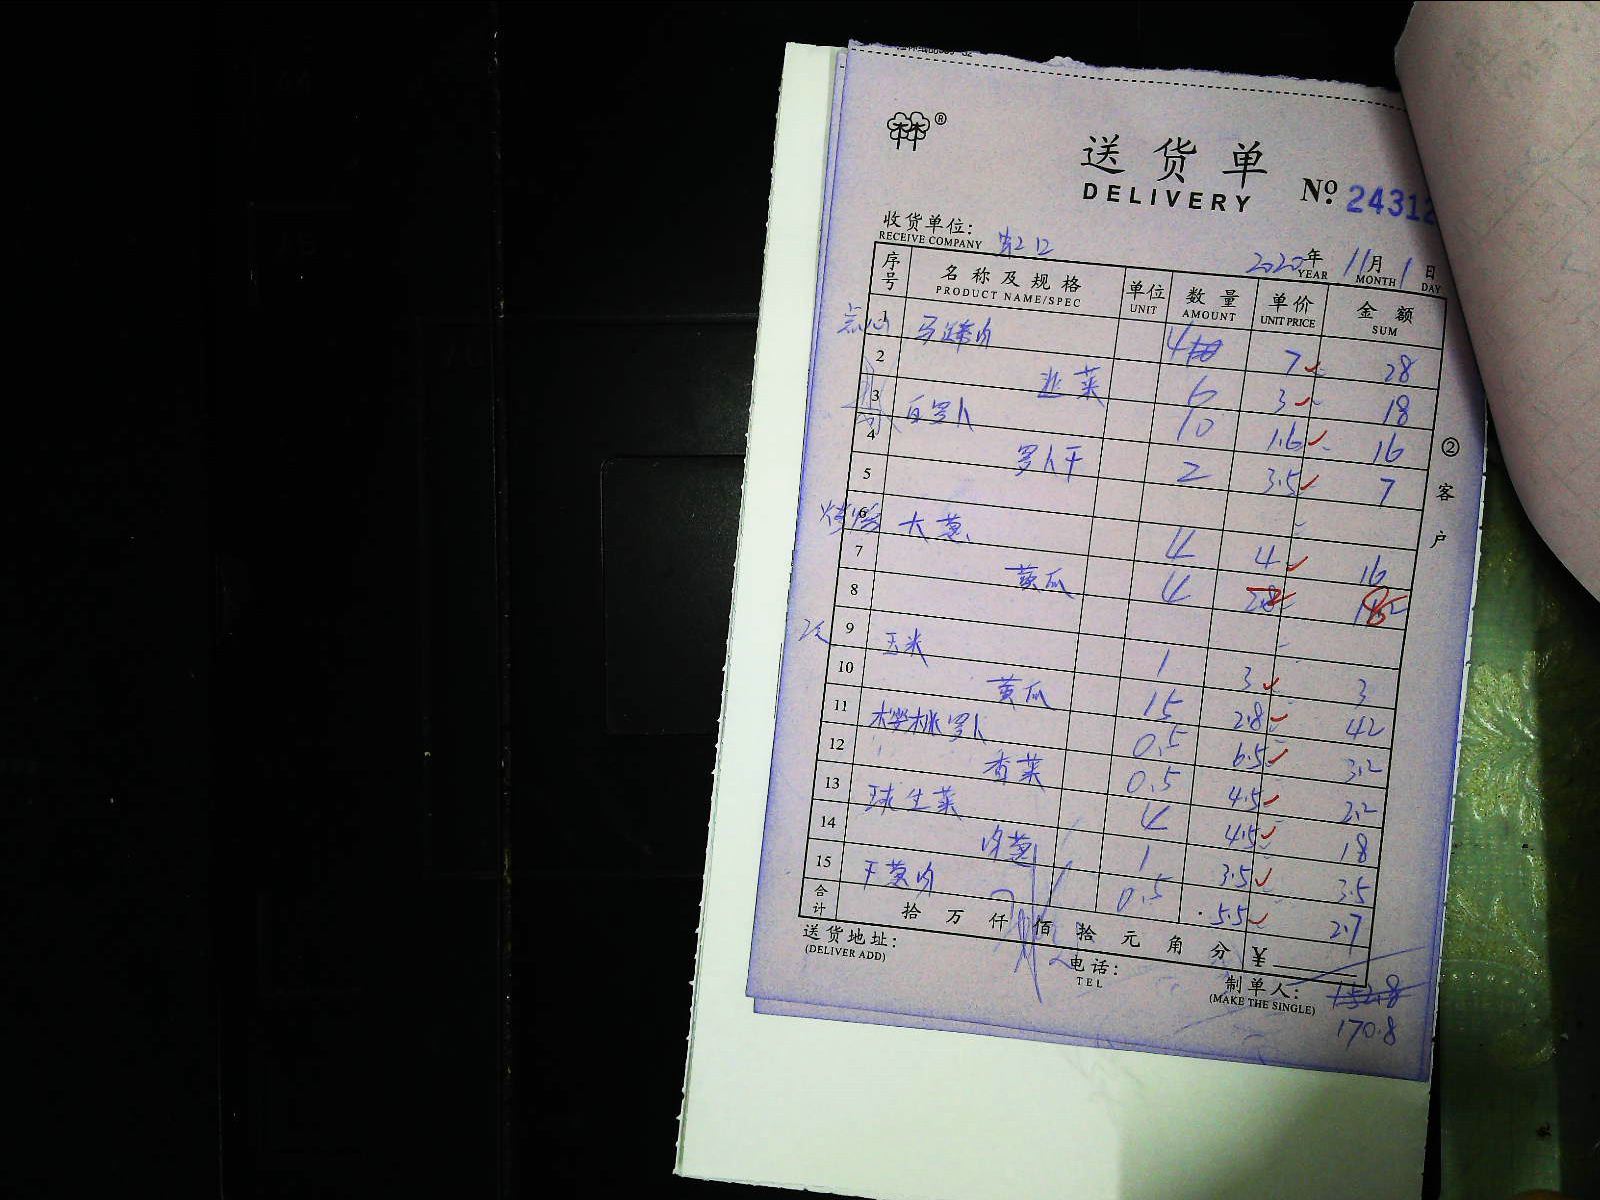 送货单
DELIVERY
Nº 24312
收货单位:
RECEIVE COMPANY
2020年 11月 1日
YEAR MONTH DAY
序号 名称及规格 单位 数量 单价 金额
PRODUCT NAME/SPEC UNIT AMOUNT UNIT PRICE SUM
点心 1 马蹄肉 4 7 28
2 韭菜 6 3 18
3 白罗卜 10 1.6 16
4 罗卜干 2 3.5 7
5
6 大葱 4 4 16
7 黄瓜 4 2.8
8
9 玉米 1 3 3
10 黄瓜 15 2.8 42
11 樱桃罗卜 0.5 6.5 3.2
12 香菜 0.5 4.5 2.2
13 球生菜 4 4.5 18
14 洋葱 1 3.5 3.5
15 干葱肉 0.5 5.5 2.7
合计 拾 万 仟 佰 拾 元 角 分 ¥
② 客户
送货地址:
(DELIVER ADD)
电话:
TEL
制单人:
(MAKE THE SINGLE)
152.8
170.8